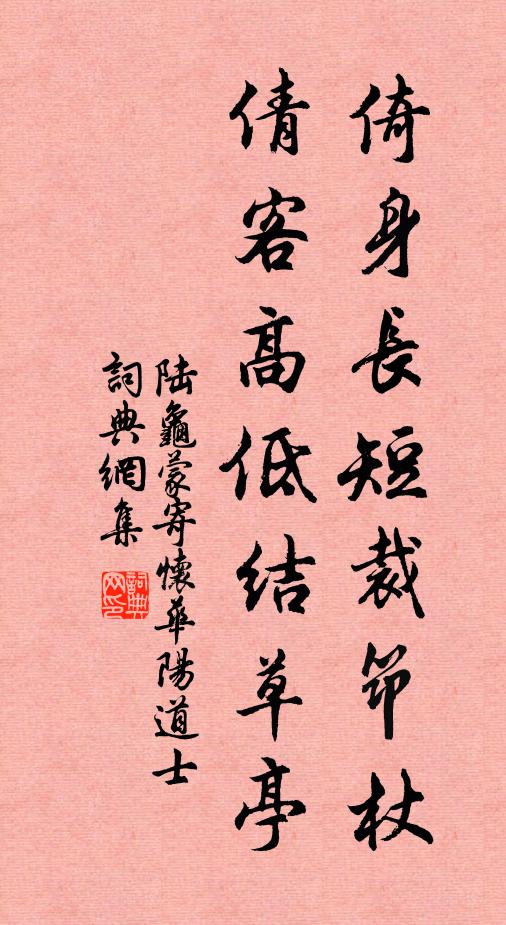 倚身長短裁筇杖
倩客高低結草亭
陸龜蒙寄懷華陽道士
詞典網集
詞典
网印